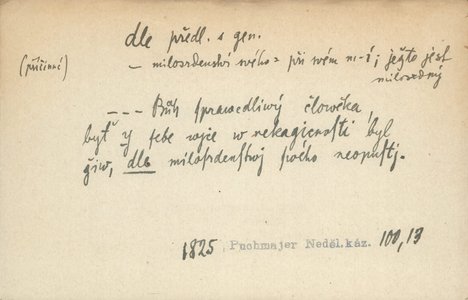 dle předl. s gen.
(příčinné)
– milosrdenství svého = při svém m-í; ježto jest
milosrdný
--- Bůh sprawedliwý člověka,
byť y sebe wjce w nekagicnosti byl
žiw, dle milosrdenstwj swého neopustj.
1825 Puchmajer Neděl. káz. 100,13